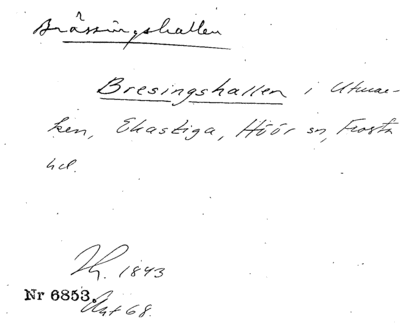 Bråssingshallen
Bresingshallen i Utmar-
ken, Ekastiga, Höör sn, Frosta
hd.
Th. 1843
Nr 6853.
68.